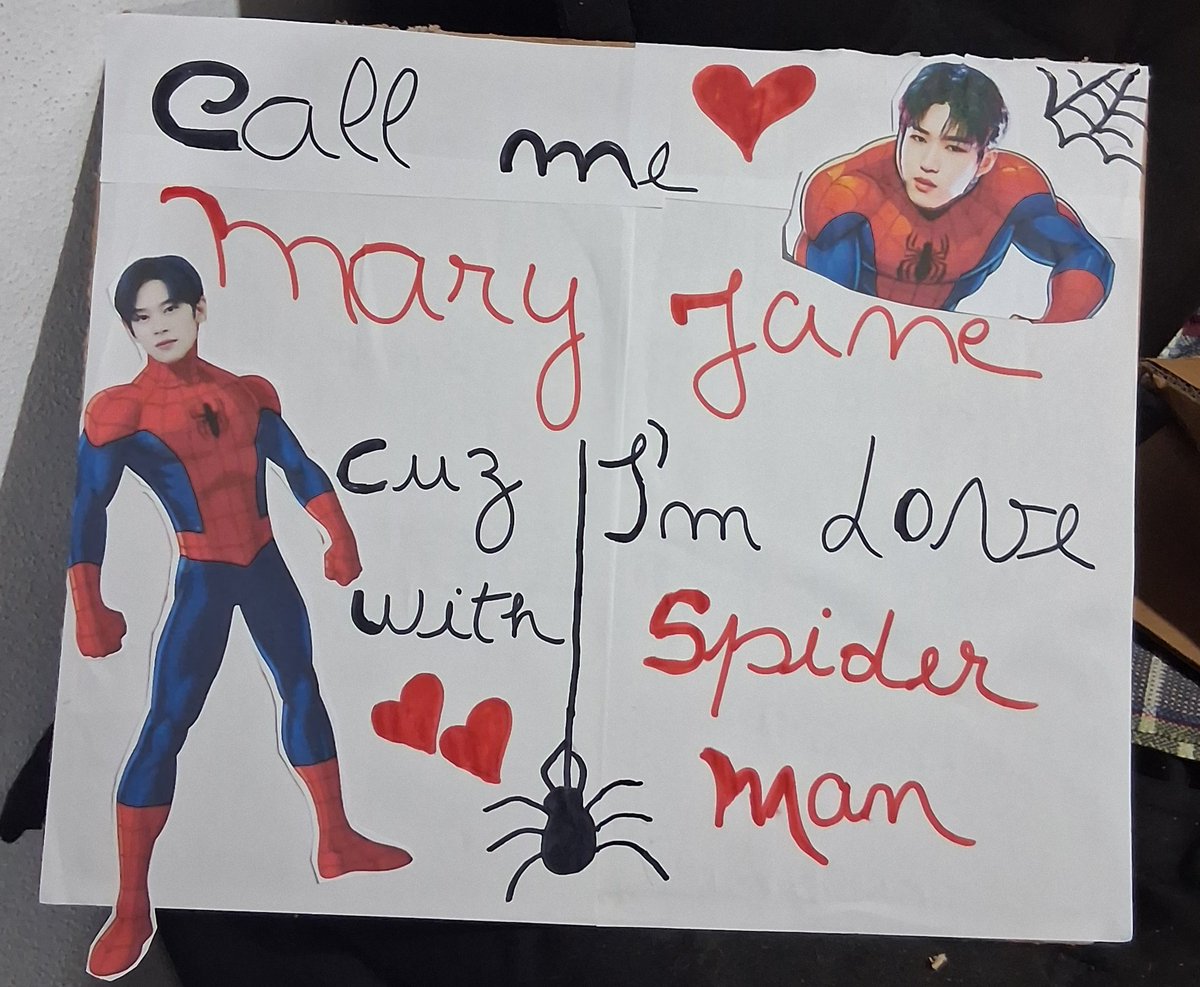 Call me
Mary Jane
cuz I'm Love
with Spider
Man